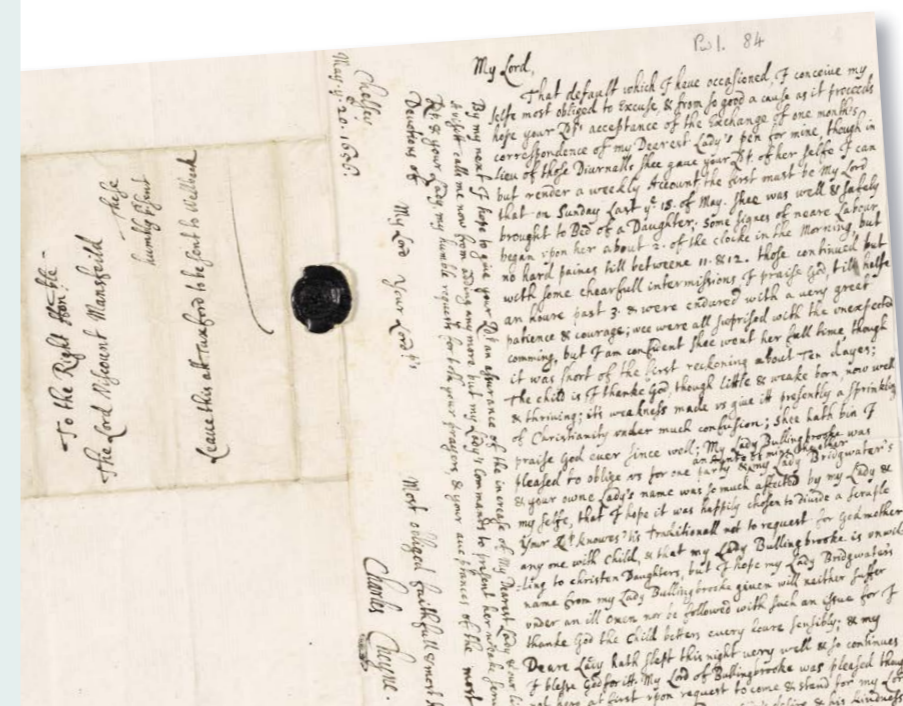 Pw 1. 84
My Lord,
That default which I haue occasioned, I conceive my
selfe most obliged to Excuse, & from so good a cause as it proceeds
hope your Lps. acceptance of the Exchange of one month's
correspondence of my Dearest Lady's pen for mine, though in
lieu of those Diurnalls shee gaue your Lp. of her selfe I can
but render a weekly Account, the first must be My Lord
that on Sunday last ye. 18. of May. Shee was well & safely
brought to Bed of a Daughter; Some signes of neare Labour
began vpon her about 2. of the clocke in the Morning, but
no hard paines till betweene 11. & 12. those continued but
with some chearfull intermissions I praise God till halfe
an houre past 3. & were endured with a uery great
patience & courage; wee were all surprised with the vnexpected
comming, but I am confident shee went her full time, though
it was short of the first reckoning about Ten dayes;
The child is I thanke God, though little & weake born, now well
& thriving; its weakness made vs giue itt presently a sprinkling
of Christianity vnder much confusion; shee hath bin I
praise God euer since well; My Lady Bullingbrooke was
pleased to oblige vs for one party & my Lady Bridgwater's
an Aunte of mine the other
& your owne Lady's name was so much affected by my Lady &
my selfe, that I hope it was happily chosen to divide a scruple
Your Lp. knowes 'tis traditionall not to request for Godmother
any one with Child, & that my Lady Bullingbrooke is vnwil
:ling to christen Daughters, but I hope my Lady Bridgwaters
name from my Lady Bullingbrooke giuen will neither suffer
vnder an ill Omen nor be followed with such an issue for I
thanke God the Child betters euery houre sensibly; & my
Deare Lady hath slept this night uery well & so continues
I blesse God for itt. My Lord of Bullingbrooke was pleased though
not here at first vpon request to come & stand for my Lord
& his kindness
By my next I hope to giue your Lp. an assurance of the increase of My Dearest Lady & our
call me now from adding any more but my Lady's Commands to present her weake
Lp. & your Lady my humble requests for both your prayers, & your acceptances of the most
Devotions of
My Lord Your Lopps.
Most obliged faithfull & most
Charles Cheyne.
Chelsey
May. ye. 20. 1656.
To the Right Honble.
The Lord Viscount Mansfeild
These
humbly present
Leaue this att Tuxford to be sent to Wellbeck